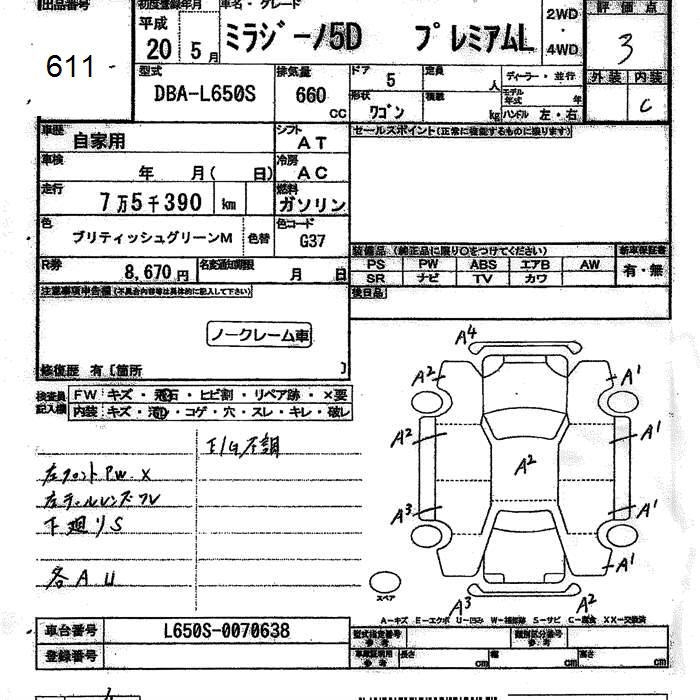 出品番号 初度登録年月 車名・グレード 評価点
611 平成 20 5月 ミラジーノ5D プレミアムL 2WD ・ 4WD 3
型式 DBA-L650S 排気量 660 CC ドア 5 定員 人 ディーラー・並行 外装 内装 C
形状 ワゴン 積載 kg モデル年式 年 ハンドル 左・右
車歴 自家用 シフト AT セールスポイント(正常に機能するものに限ります)
車検 年 月( 日) 冷房 AC
走行 7万5千390 km 燃料 ガソリン
色 ブリティッシュグリーンM 色替 色コード G37
装備品 (純正品に限り○をつけてください) 新車保証書
PS PW ABS エアB AW 有・無
SR ナビ TV カワ
R券 8,670円 名変通知期限 月 日
後日品
注意事項申告欄(不具合内容等は具体的に記入して下さい)
ノークレーム車
修復歴 有〔箇所 〕
検査員記入欄 FW キズ・飛石・ヒビ割・リペア跡・×要
内装 キズ・汚・コゲ・穴・スレ・キレ・破レ
E/G不調
左フロントPW X
左テールレンズワレ
下廻りS
各AU
A4
A2 A1
A2 A1
A2
A3 A1
A1
A3 A2
スペア
A-キズ E-エクボ U-凹ミ W-補修跡 S-サビ C-腐食 XX-交換済
車台番号 L650S-0070638 型式指定番号 参考 類別区分番号 参考
登録番号 車庫証明用 参考 長さ cm 幅 cm 高さ cm